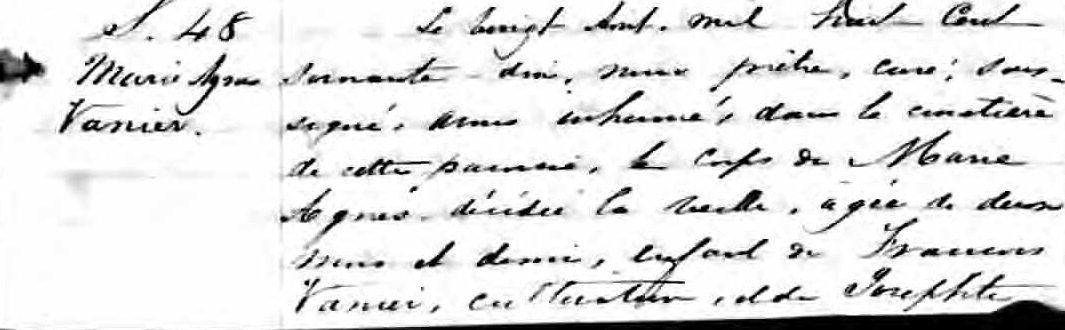 S. 48
Marie Agnes
Vanier.
Le vingt Aout, mil huit cent
soixante - dix, nous prêtre, curé, sous-
signé, avons inhumé, dans le cimetière
de cette paroisse, le corps de Marie
Agnès, décédée la veille, âgée de deux
mois et demi, enfant de Francois
Vanier, cultivateur, et de Josephte